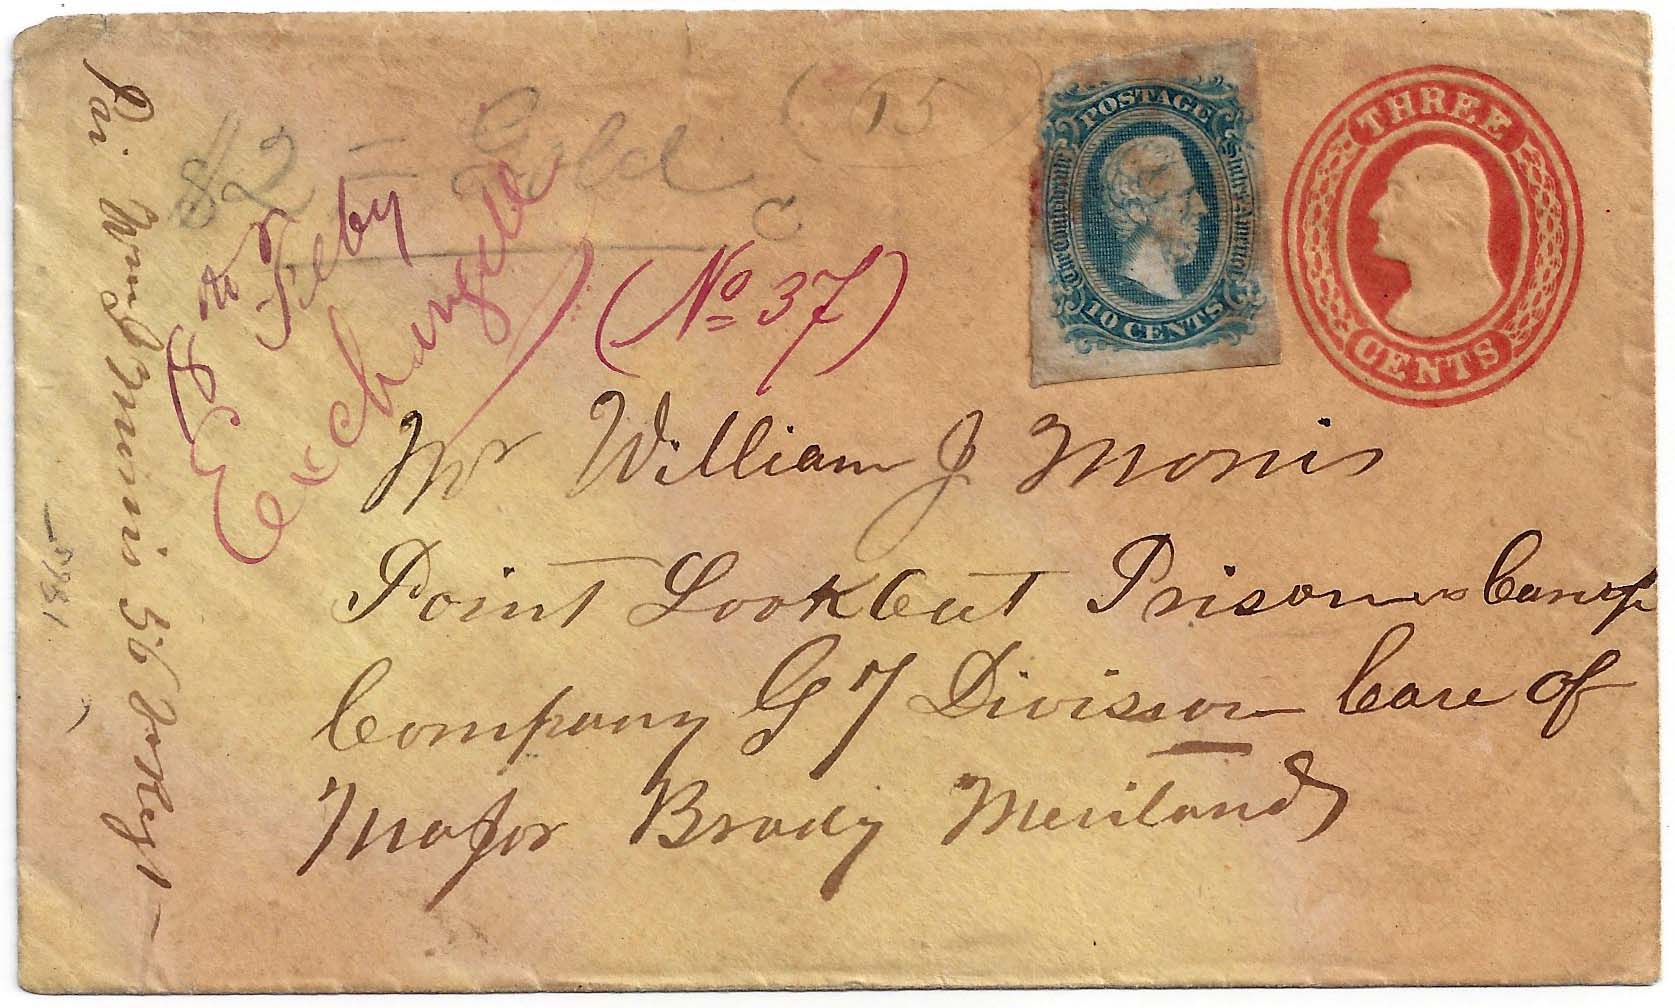 $2 = Gold
15
C
POSTAGE
The Confederate States of America
10 CENTS
THREE
CENTS
Feby
Exchanged
(No 37)
Mr William J Morris
Point LookOut Prisoners Camp
Company G 7 Division Care of
Major Brady Meriland
Pri Wm J Morris 56 Va Regt -
1865